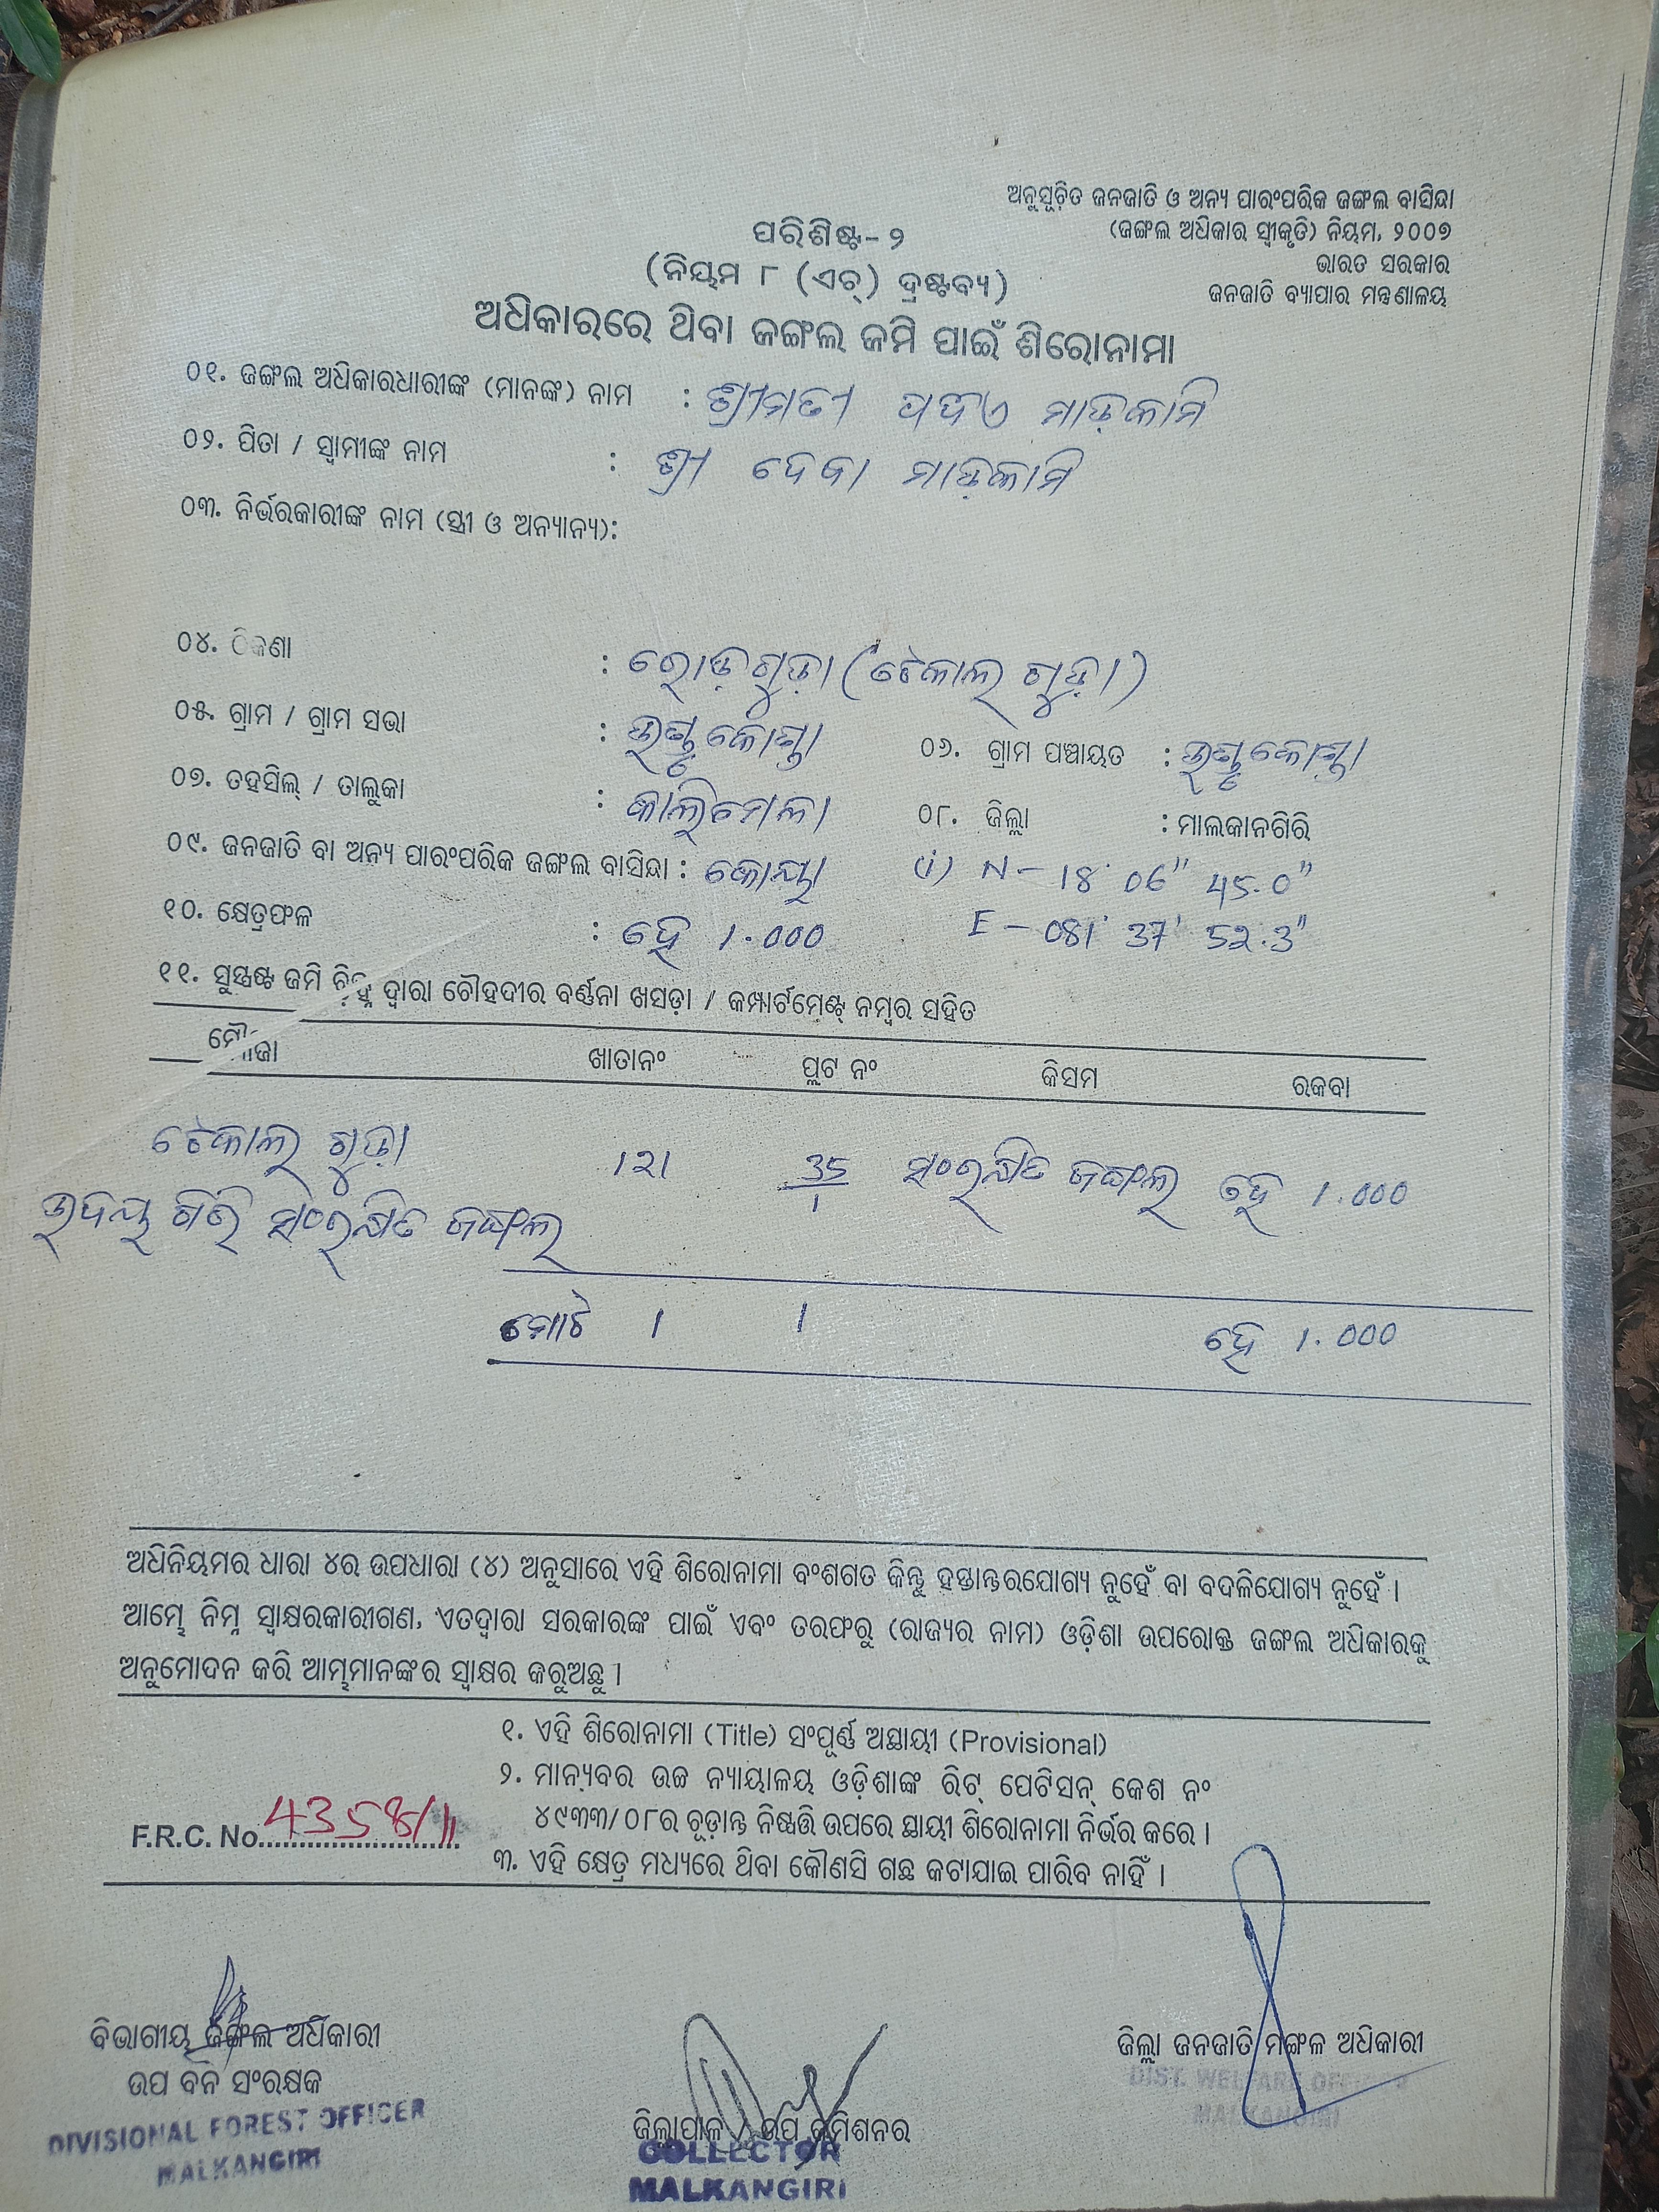 ଅନୁସୂଚିତ ଜନଜାତି ଓ ଅନ୍ୟ ପାରଂପରିକ ଜଙ୍ଗଲ ବାସିନ୍ଦା
(ଜଙ୍ଗଲ ଅଧିକାର ସ୍ୱୀକୃତି) ନିୟମ, ୨୦୦୭
ଭାରତ ସରକାର
ଜନଜାତି ବ୍ୟାପାର ମନ୍ତ୍ରଣାଳୟ
ପରିଶିଷ୍ଟ-୨
(ନିୟମ ୮ (ଏଚ୍) ଦ୍ରଷ୍ଟବ୍ୟ)
ଅଧିକାରରେ ଥିବା ଜଙ୍ଗଲ ଜମି ପାଇଁ ଶିରୋନାମା
୦୧. ଜଙ୍ଗଲ ଅଧିକାରଧାରୀଙ୍କ (ମାନଙ୍କ) ନାମ : ଶ୍ରୀମତୀ ମାଡ଼କାମି
୦୨. ପିତା / ସ୍ୱାମୀଙ୍କ ନାମ : ଶ୍ରୀ ଦେବା ମାଡ଼କାମି
୦୩. ନିର୍ଭରକାରୀଙ୍କ ନାମ (ସ୍ତ୍ରୀ ଓ ଅନ୍ୟାନ୍ୟ):
୦୪. ଠିକଣା : ରୋଡ଼ଗୁଡ଼ା (ଟେକାଲ୍ ଗୁଡ଼ା)
୦୫. ଗ୍ରାମ / ଗ୍ରାମ ସଭା : ଉଣ୍ଡୁକୋଣ୍ଡା ୦୬. ଗ୍ରାମ ପଞ୍ଚାୟତ : ଉଣ୍ଡୁକୋଣ୍ଡା
୦୭. ତହସିଲ୍ / ତାଲୁକା : କାଲିମେଳା ୦୮. ଜିଲ୍ଲା : ମାଲକାନଗିରି
୦୯. ଜନଜାତି ବା ଅନ୍ୟ ପାରଂପରିକ ଜଙ୍ଗଲ ବାସିନ୍ଦା : କୋୟା (i) N - 18° 06" 45.0"
୧୦. କ୍ଷେତ୍ରଫଳ : ହେ 1.000 E - 081° 37' 52.3"
୧୧. ସୁସ୍ପଷ୍ଟ ଜମି ଚିହ୍ନ ଦ୍ୱାରା ଚୌହଦୀର ବର୍ଣ୍ଣନା ଖସଡ଼ା / କମ୍ପାର୍ଟମେଣ୍ଟ୍ ନମ୍ବର ସହିତ
ମୌଜା ଖାତାନଂ ପ୍ଲଟ ନଂ କିସମ ରକବା
ଟେକାଲ୍ ଗୁଡ଼ା 121 35/1 ସଂରକ୍ଷିତ ଜଙ୍ଗଲ ହେ 1.000
ଉଦୟ ଗିରି ସଂରକ୍ଷିତ ଜଙ୍ଗଲ
ମୋଟ 1 1 ହେ 1.000
ଅଧିନିୟମର ଧାରା ୪ର ଉପଧାରା (୪) ଅନୁସାରେ ଏହି ଶିରୋନାମା ବଂଶଗତ କିନ୍ତୁ ହସ୍ତାନ୍ତରଯୋଗ୍ୟ ନୁହେଁ ବା ବଦଳିଯୋଗ୍ୟ ନୁହେଁ ।
ଆମ୍ଭେ ନିମ୍ନ ସ୍ୱାକ୍ଷରକାରୀଗଣ, ଏତଦ୍ୱାରା ସରକାରଙ୍କ ପାଇଁ ଏବଂ ତରଫରୁ (ରାଜ୍ୟର ନାମ) ଓଡ଼ିଶା ଉପରୋକ୍ତ ଜଙ୍ଗଲ ଅଧିକାରକୁ
ଅନୁମୋଦନ କରି ଆମ୍ଭମାନଙ୍କର ସ୍ୱାକ୍ଷର କରୁଅଛୁ ।
୧. ଏହି ଶିରୋନାମା (Title) ସଂପୂର୍ଣ୍ଣ ଅସ୍ଥାୟୀ (Provisional)
୨. ମାନ୍ୟବର ଉଚ୍ଚ ନ୍ୟାୟାଳୟ ଓଡ଼ିଶାଙ୍କ ରିଟ୍ ପେଟିସନ୍ କେଶ ନଂ
୪୯୩୩/୦୮ର ଚୂଡ଼ାନ୍ତ ନିଷ୍ପତ୍ତି ଉପରେ ସ୍ଥାୟୀ ଶିରୋନାମା ନିର୍ଭର କରେ ।
F.R.C. No. 4358/11
୩. ଏହି କ୍ଷେତ୍ର ମଧ୍ୟରେ ଥିବା କୌଣସି ଗଛ କଟାଯାଇ ପାରିବ ନାହିଁ ।
ବିଭାଗୀୟ ଜଙ୍ଗଲ ଅଧିକାରୀ
ଉପ ବନ ସଂରକ୍ଷକ
DIVISIONAL FOREST OFFICER
MALKANGIRI
ଜିଲ୍ଲାପାଳ / ଉପ କମିଶନର
COLLECTOR
MALKANGIRI
ଜିଲ୍ଲା ଜନଜାତି ମଙ୍ଗଳ ଅଧିକାରୀ
DIST. WELFARE OFFICER
MALKANGIRI